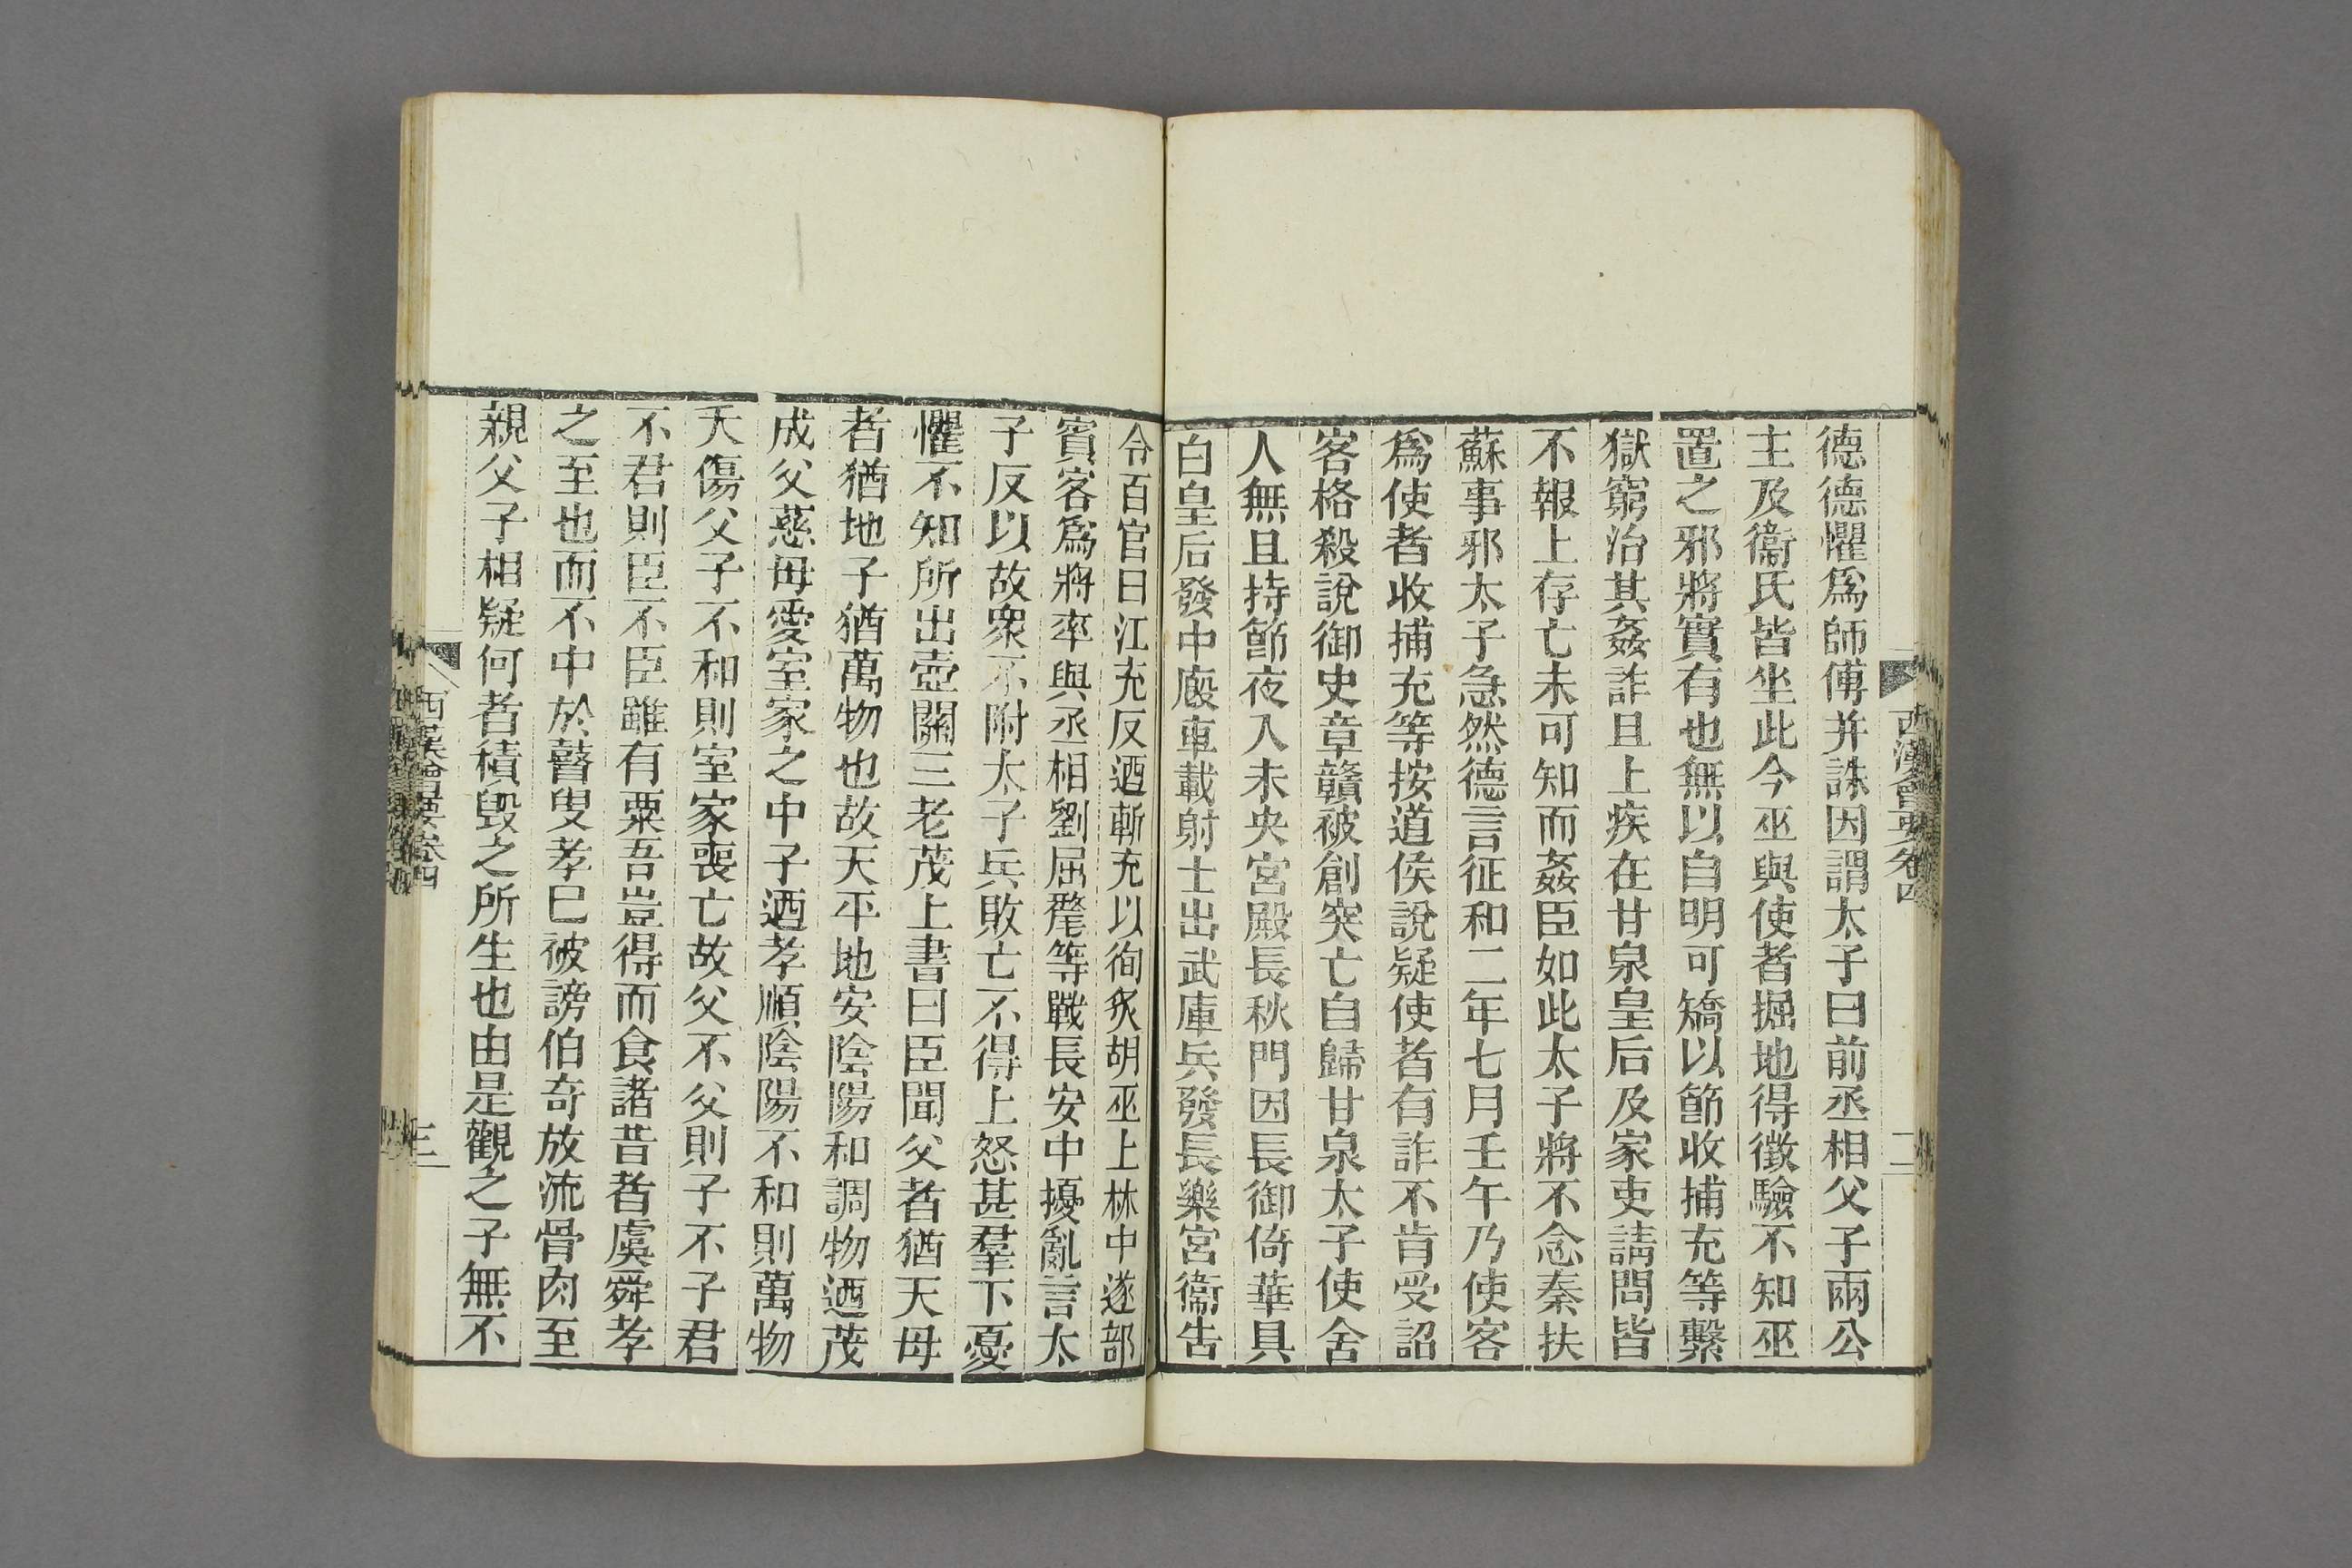 西漢會要卷四
二
德德懼爲師傅并誅因謂太子曰前丞相父子兩公
主及衞氏皆坐此今巫與使者掘地得徵驗不知巫
置之邪將實有也無以自明可矯以節收捕充等繫
獄窮治其姦詐且上疾在甘泉皇后及家吏請問皆
不報上存亡未可知而姦臣如此太子將不念秦扶
蘇事邪太子急然德言征和二年七月壬午乃使客
爲使者收捕充等按道侯說疑使者有詐不肯受詔
客格殺說御史章贛被創突亡自歸甘泉太子使舍
人無且持節夜入未央宮殿長秋門因長御倚華具
白皇后發中廄車載射士出武庫兵發長樂宮衞告
令百官曰江充反迺斬充以徇炙胡巫上林中遂部
賓客爲將率與丞相劉屈氂等戰長安中擾亂言太
子反以故衆不附太子兵敗亡不得上怒甚羣下憂
懼不知所出壺關三老茂上書曰臣聞父者猶天母
者猶地子猶萬物也故天平地安陰陽和調物迺茂
成父慈母愛室家之中子迺孝順陰陽不和則萬物
夭傷父子不和則室家喪亡故父不父則子不子君
不君則臣不臣雖有粟吾豈得而食諸昔者虞舜孝
之至也而不中於瞽叟孝巳被謗伯奇放流骨肉至
親父子相疑何者積毀之所生也由是觀之子無不
西漢會要卷四
三